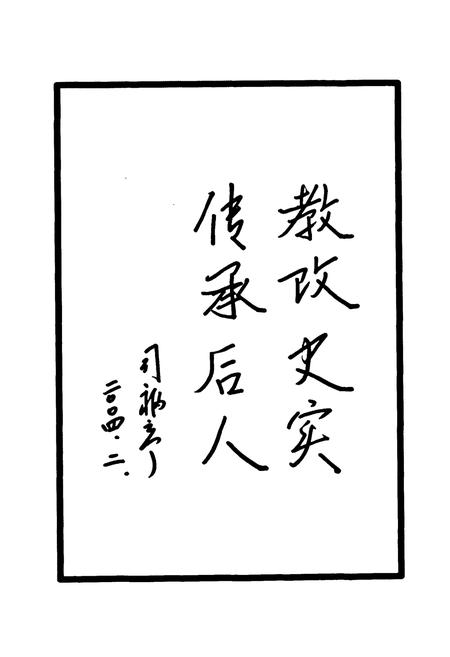 教改史实
传承后人
司
二〇〇四.二.